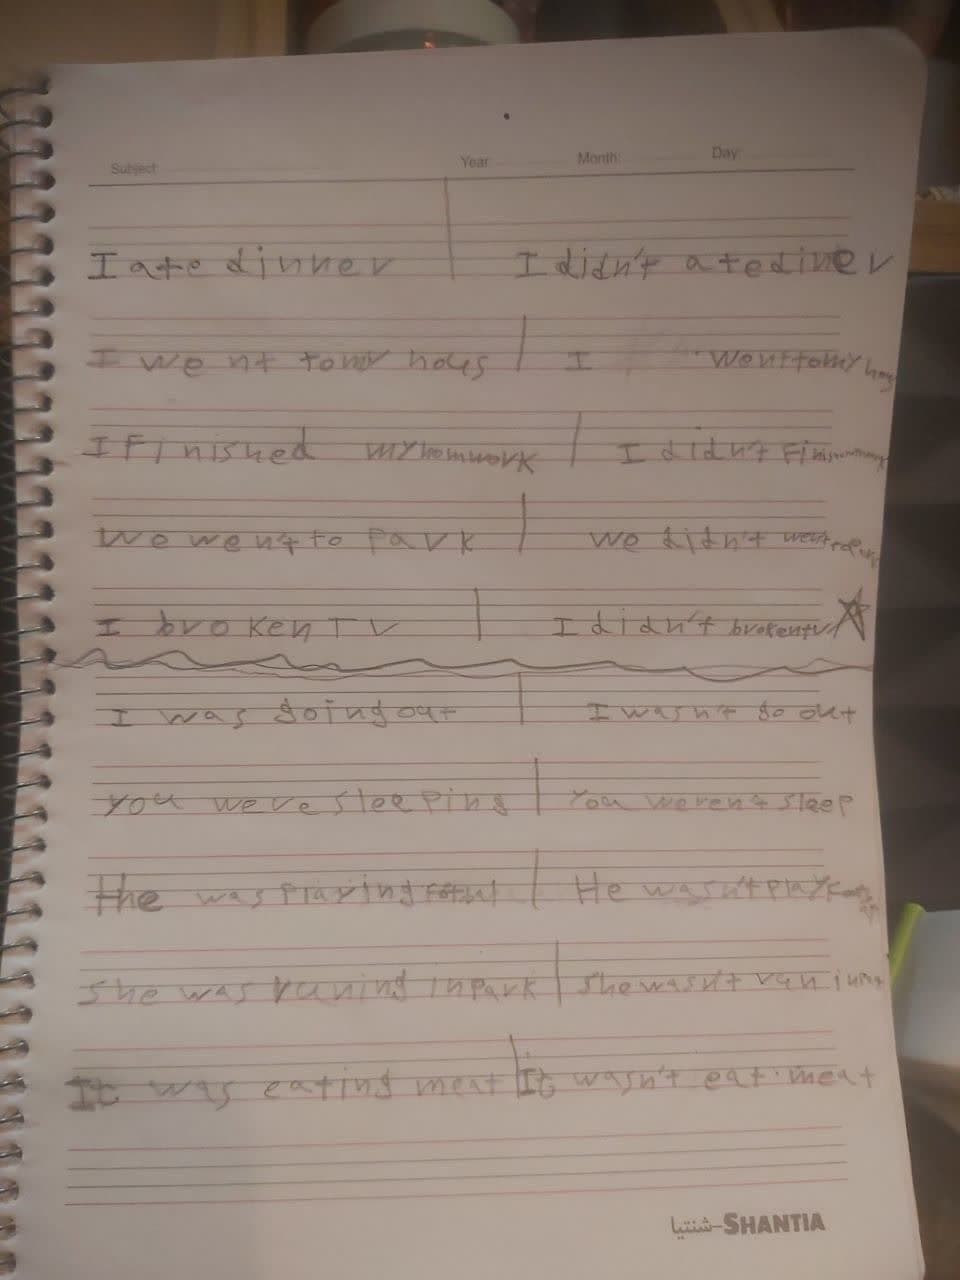 Subject: Year Month: Day:
I ate dinner I didn't ate diner
I went to my hous I went to my
I Finished my homwork I didn't
We went to Park We didn't went
I broken TV I didn't broken tv
I was going out I wasn't go out
you were sleeping You werent sleep
the was Playing He wasn't play
She was runing in Park She wasn't run in
It was eating meat It wasn't eat meat
شنتیا-SHANTIA